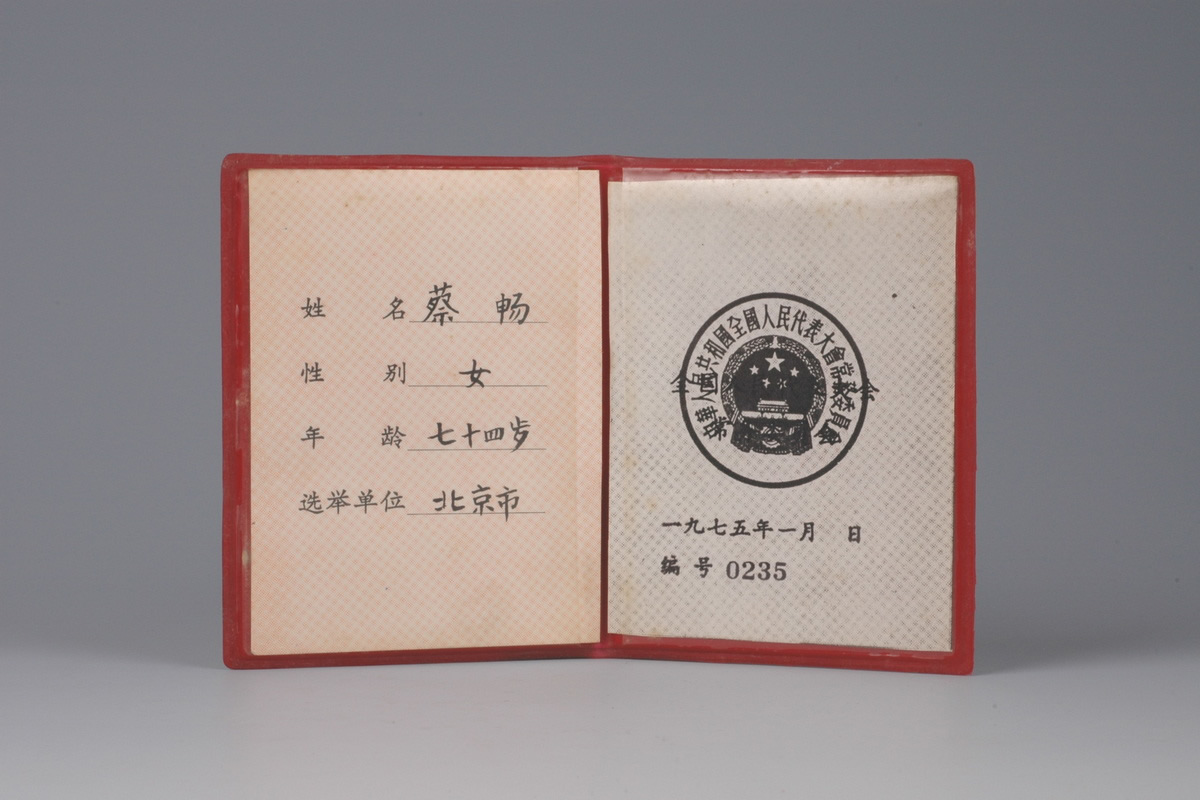 姓名 蔡畅
性别 女
年龄 七十四岁
选举单位 北京市
中華人民共和國全國人民代表大會常務委員會
一九七五年一月 日
编号 0235